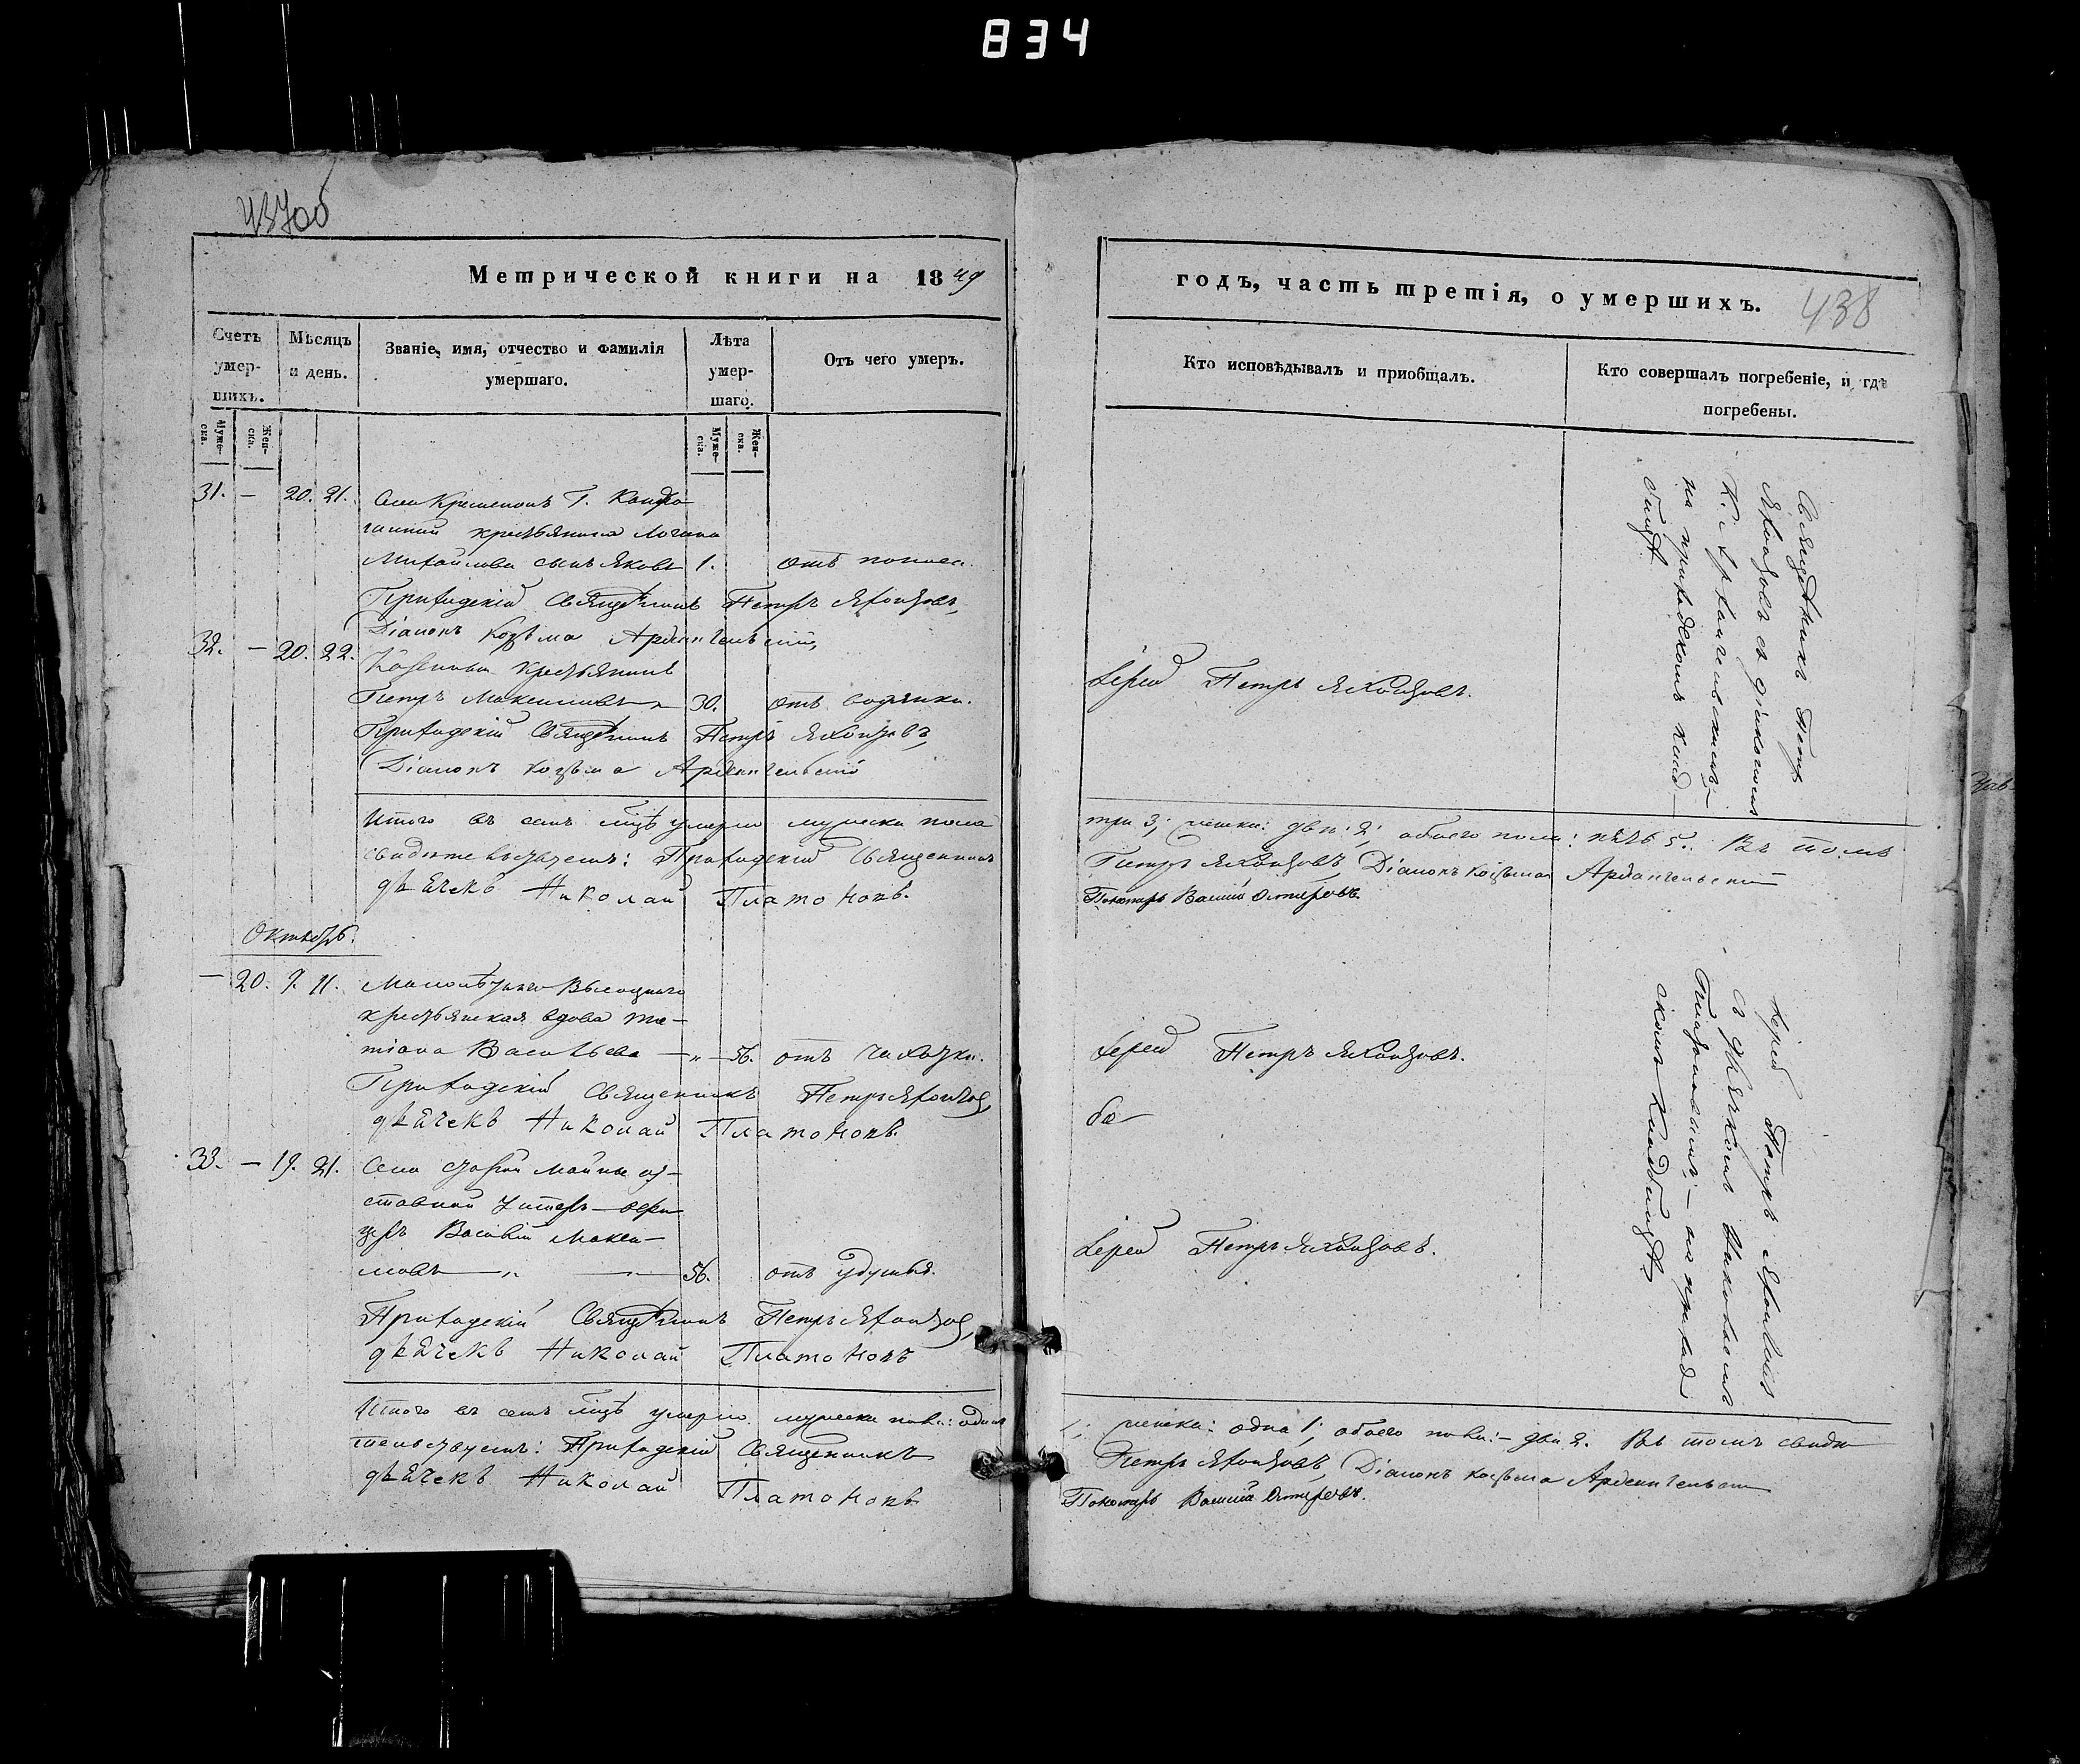 834
437об
Метрической книги на 1849
Счетъ умер-шихъ.
Мѣсяцъ и день.
Званіе, имя, отчество и фамилія умершаго.
Лѣта умер-шаго.
Отъ чего умеръ.
Муже-ска.
Жен-ска.
Муже-ска.
Жен-ска.
31. — 20. 21. Села Кременокъ Г.
крестьянина Логина
Михайлова сынъ Яковъ 1. отъ поноса.
Приходскій Священникъ Петръ Яхонтовъ,
Діаконъ Козьма Архангельскій,
32. — 20. 22. крестьянинъ
Петръ Максимовъ „ 30. отъ водянки.
Приходскій Священникъ Петръ Яхонтовъ,
Діаконъ Козьма Архангельскій
Итого въ семъ мѣсяцѣ умерло мужеска пола
свидѣтельствуемъ: Приходскій Священникъ
дьячекъ Николай Платоновъ.
Октябрь.
— 20. 9. 11. Высоцкаго
крестьянская вдова Та-
тіана Васильева — „ — 56. отъ чахотки.
Приходскій Священникъ Петръ Яхонтовъ,
дьячекъ Николай Платоновъ.
33. — 19. 21. Села Старой Майны от-
ставной Унтеръ-офи
церъ Василій Макси-
мовъ — „ — 56. отъ удушья.
Приходскій Священникъ Петръ Яхонтовъ,
дьячекъ Николай Платоновъ
Итого въ семъ мѣсяцѣ умерло мужеска пола: одинъ
тельствуемъ: Приходскій Священникъ
дьячекъ Николай Платоновъ.
годъ, часть третія, о умершихъ.
438
Кто исповѣдывалъ и приобщалъ.
Кто совершалъ погребеніе, и гдѣ погребены.
Священникъ Петръ
Яхонтовъ съ діакономъ
К. Архангельскимъ —
на приходскомъ клад-
бищѣ
Іерей Петръ Яхонтовъ.
три 3; женска: двѣ: 2; обоего пола: пять 5. Въ томъ
Петръ Яхонтовъ, Діаконъ Козьма Архангельскій
Пономарь Василій
Іерей Петръ Яхонтовъ.
Іерей Петръ Яхонтовъ
съ дьячкомъ Николаемъ
Платоновымъ: — на приход
скомъ кладбищѣ
Іерей Петръ Яхонтовъ.
1; женска: одна 1; обоего пола: — два 2. Въ томъ свидѣ
Петръ Яхонтовъ, Діаконъ Козьма Архангельскій
Пономарь Василій